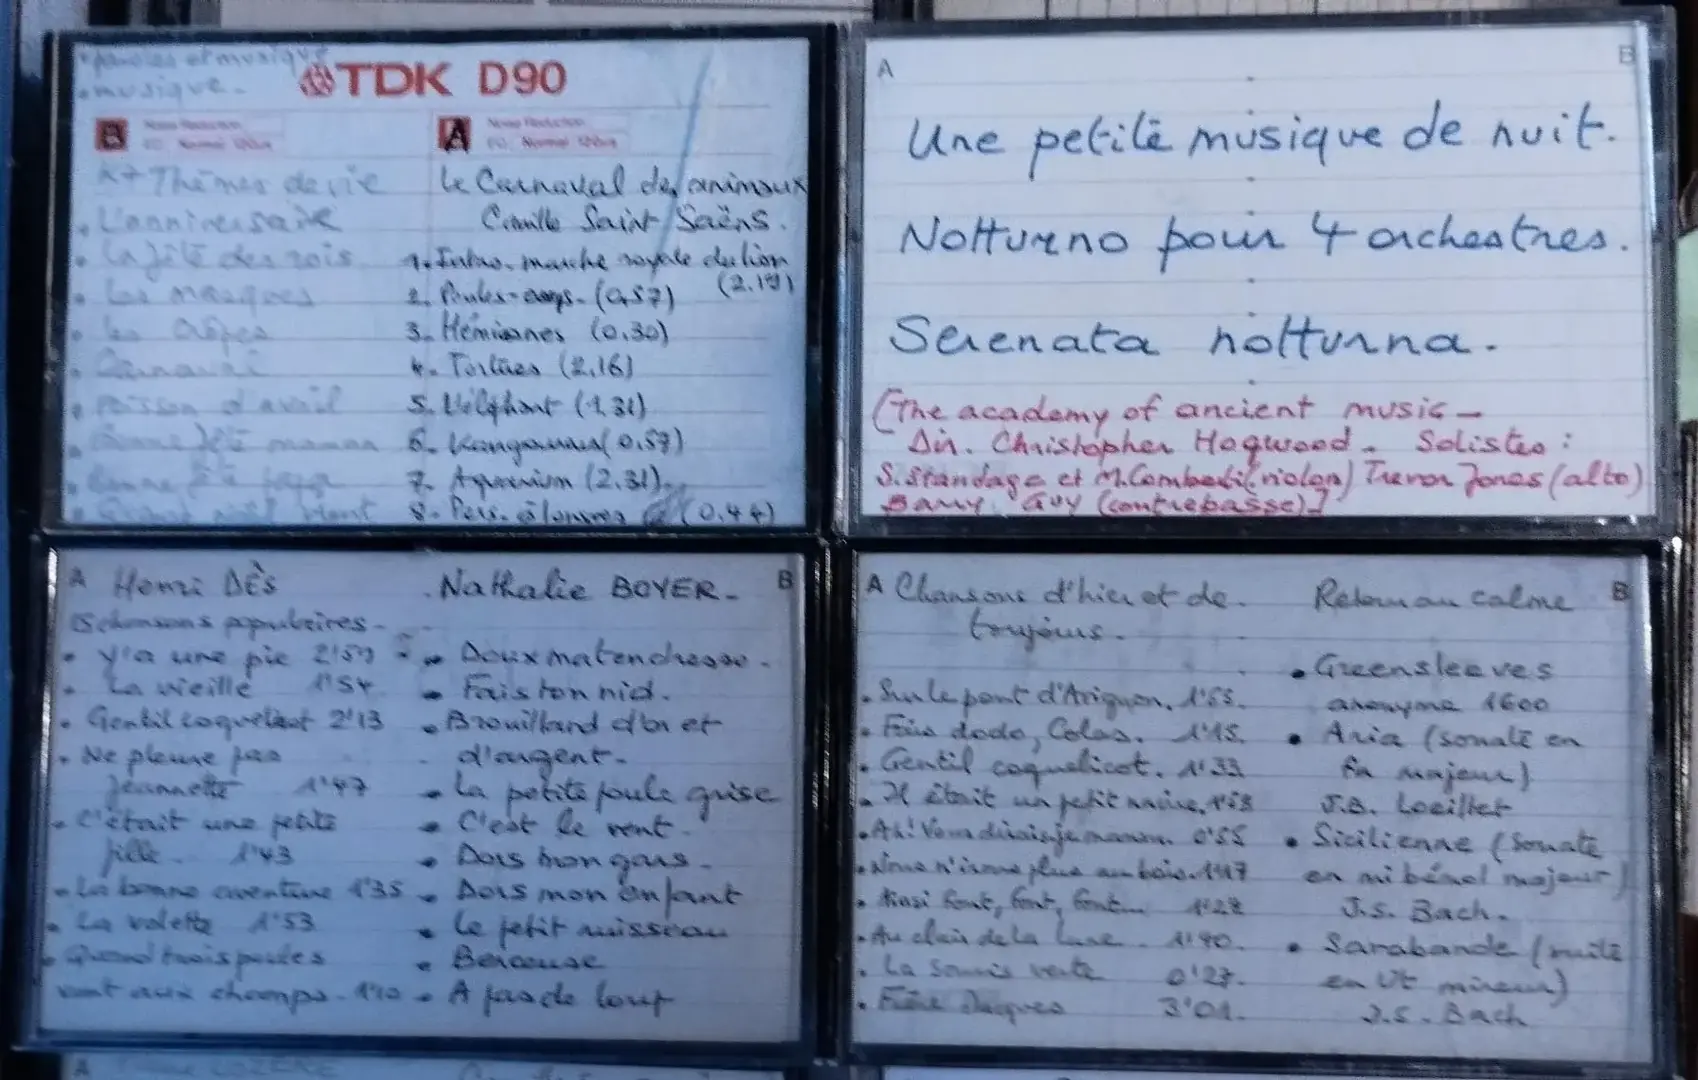 paroles et musique
musique.
TDK D90
B
K7 Thèmes de vie
• L'anniversaire
• La fête des rois
• Les masques
• Les crêpes
• Carnaval
• Poisson d'avril
• Bonne fête maman
• Bonne fête papa
• Quand Noël vient
A
Le Carnaval des animaux
Camille Saint Saëns.
1. Intro. marche royale du lion
(2.19)
2. Poules-coqs. (0,57)
3. Hémiones (0.30)
4. Tortues (2,16)
5. L'éléphant (1,31)
6. Kangourous (0.57)
7. Aquarium (2.31)
8. Pers. à longues (0,44)
A B
Une petite musique de nuit.
Notturno pour 4 orchestres.
Serenata notturna.
[The academy of ancient music -
Dir. Christopher Hogwood. Solistes :
S. Standage et M. Comberti (violon) Trevor Jones (alto)
Barry Guy (contrebasse)]
A Henri DÈS
15 chansons populaires -
• Y'a une pie 2'59
• La vieille 1'54
• Gentil coquelicot 2'13
• Ne pleure pas
Jeannette 1'47
• C'était une petite
fille. 1'43
• La bonne aventure 1'35
• La volette 1'53
• Quand trois poules
vont aux champs. 1'10
Nathalie BOYER - B
• Doux ma tendresse.
• Fais ton nid.
• Brouillard d'or et
d'argent.
• La petite poule grise
• C'est le vent.
• Dors mon gars.
• Dors mon enfant
• Le petit ruisseau
• Berceuse
• A pas de loup
A Chansons d'hier et de
toujours.
• Sur le pont d'Avignon. 1'55.
• Fais dodo, Colas. 1'15.
• Gentil coquelicot. 1'33
• Il était un petit navire.
• Ah! Vous dirais je maman 0'55
• Nous n'irons plus au bois. 1'17
• Ainsi font, font, font... 1'28
• Au clair de la lune. 1'40.
• La souris verte 0'27.
• Frère Jacques 3'01.
Retour au calme B
• Greensleeves
anonyme 1600
• Aria (sonate en
fa majeur)
J.B. Loeillet
• Sicilienne (sonate
en mi bémol majeur)
J.S. Bach.
• Sarabande (suite
en Ut mineur)
J.S. Bach
A